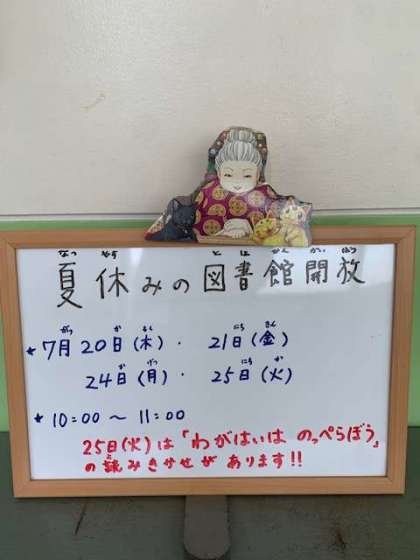 夏休みの図書館開放
★7月20日(木)・21日(金)
24日(月)・25日(火)
★10:00～11:00
25日(火)は「わがはいは のっぺらぼう」
の読みきかせが あります!!